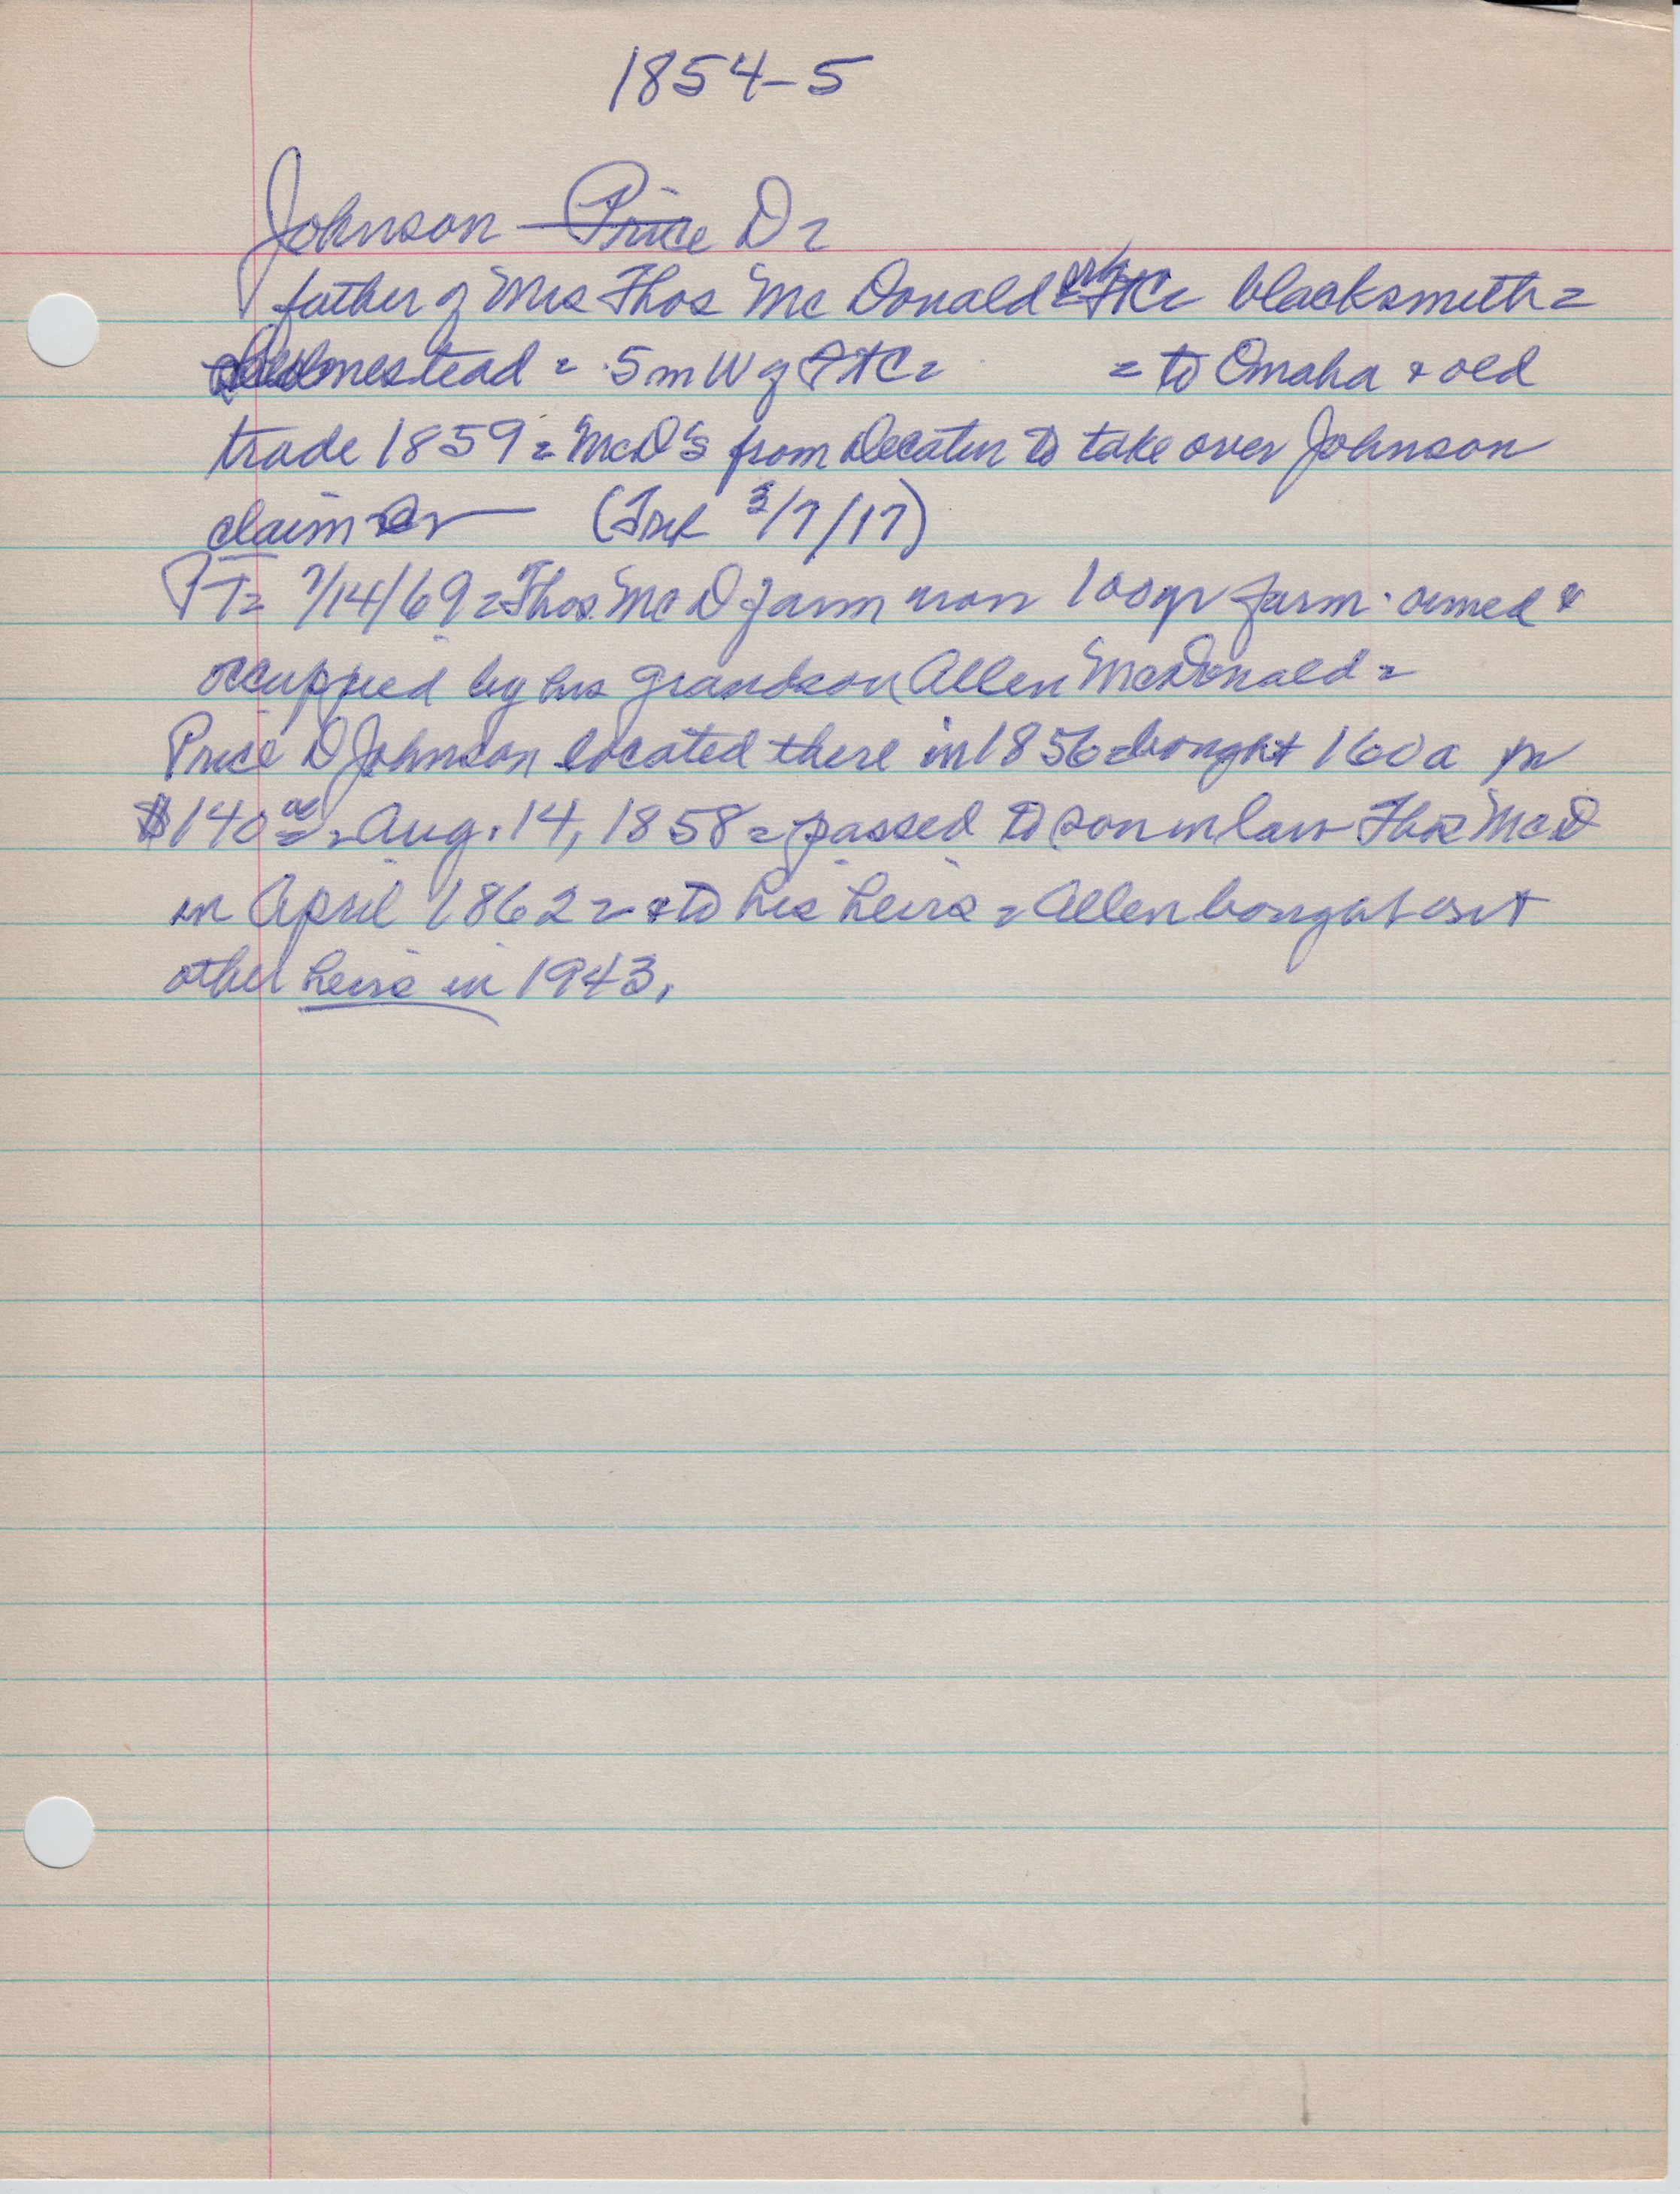 1854-5
Johnson - Price D =
father of Mrs Thos McDonald = FtC = blacksmith =
homestead = 5 m W of FtC = = to Omaha & old
trade 1859 = McD's from Decatur to take over Johnson
claim (3/7/17)
PT = 7/14/69 = Thos. McD farm won 100yr farm. owned &
occupied by his grandson Allen McDonald =
Price D Johnson located there in 1856 = bought 160a for
$140.00 = Aug. 14, 1858 = passed to son in law Thos McD
in April 1862 = & to his heirs = Allen bought out
other heirs in 1943.